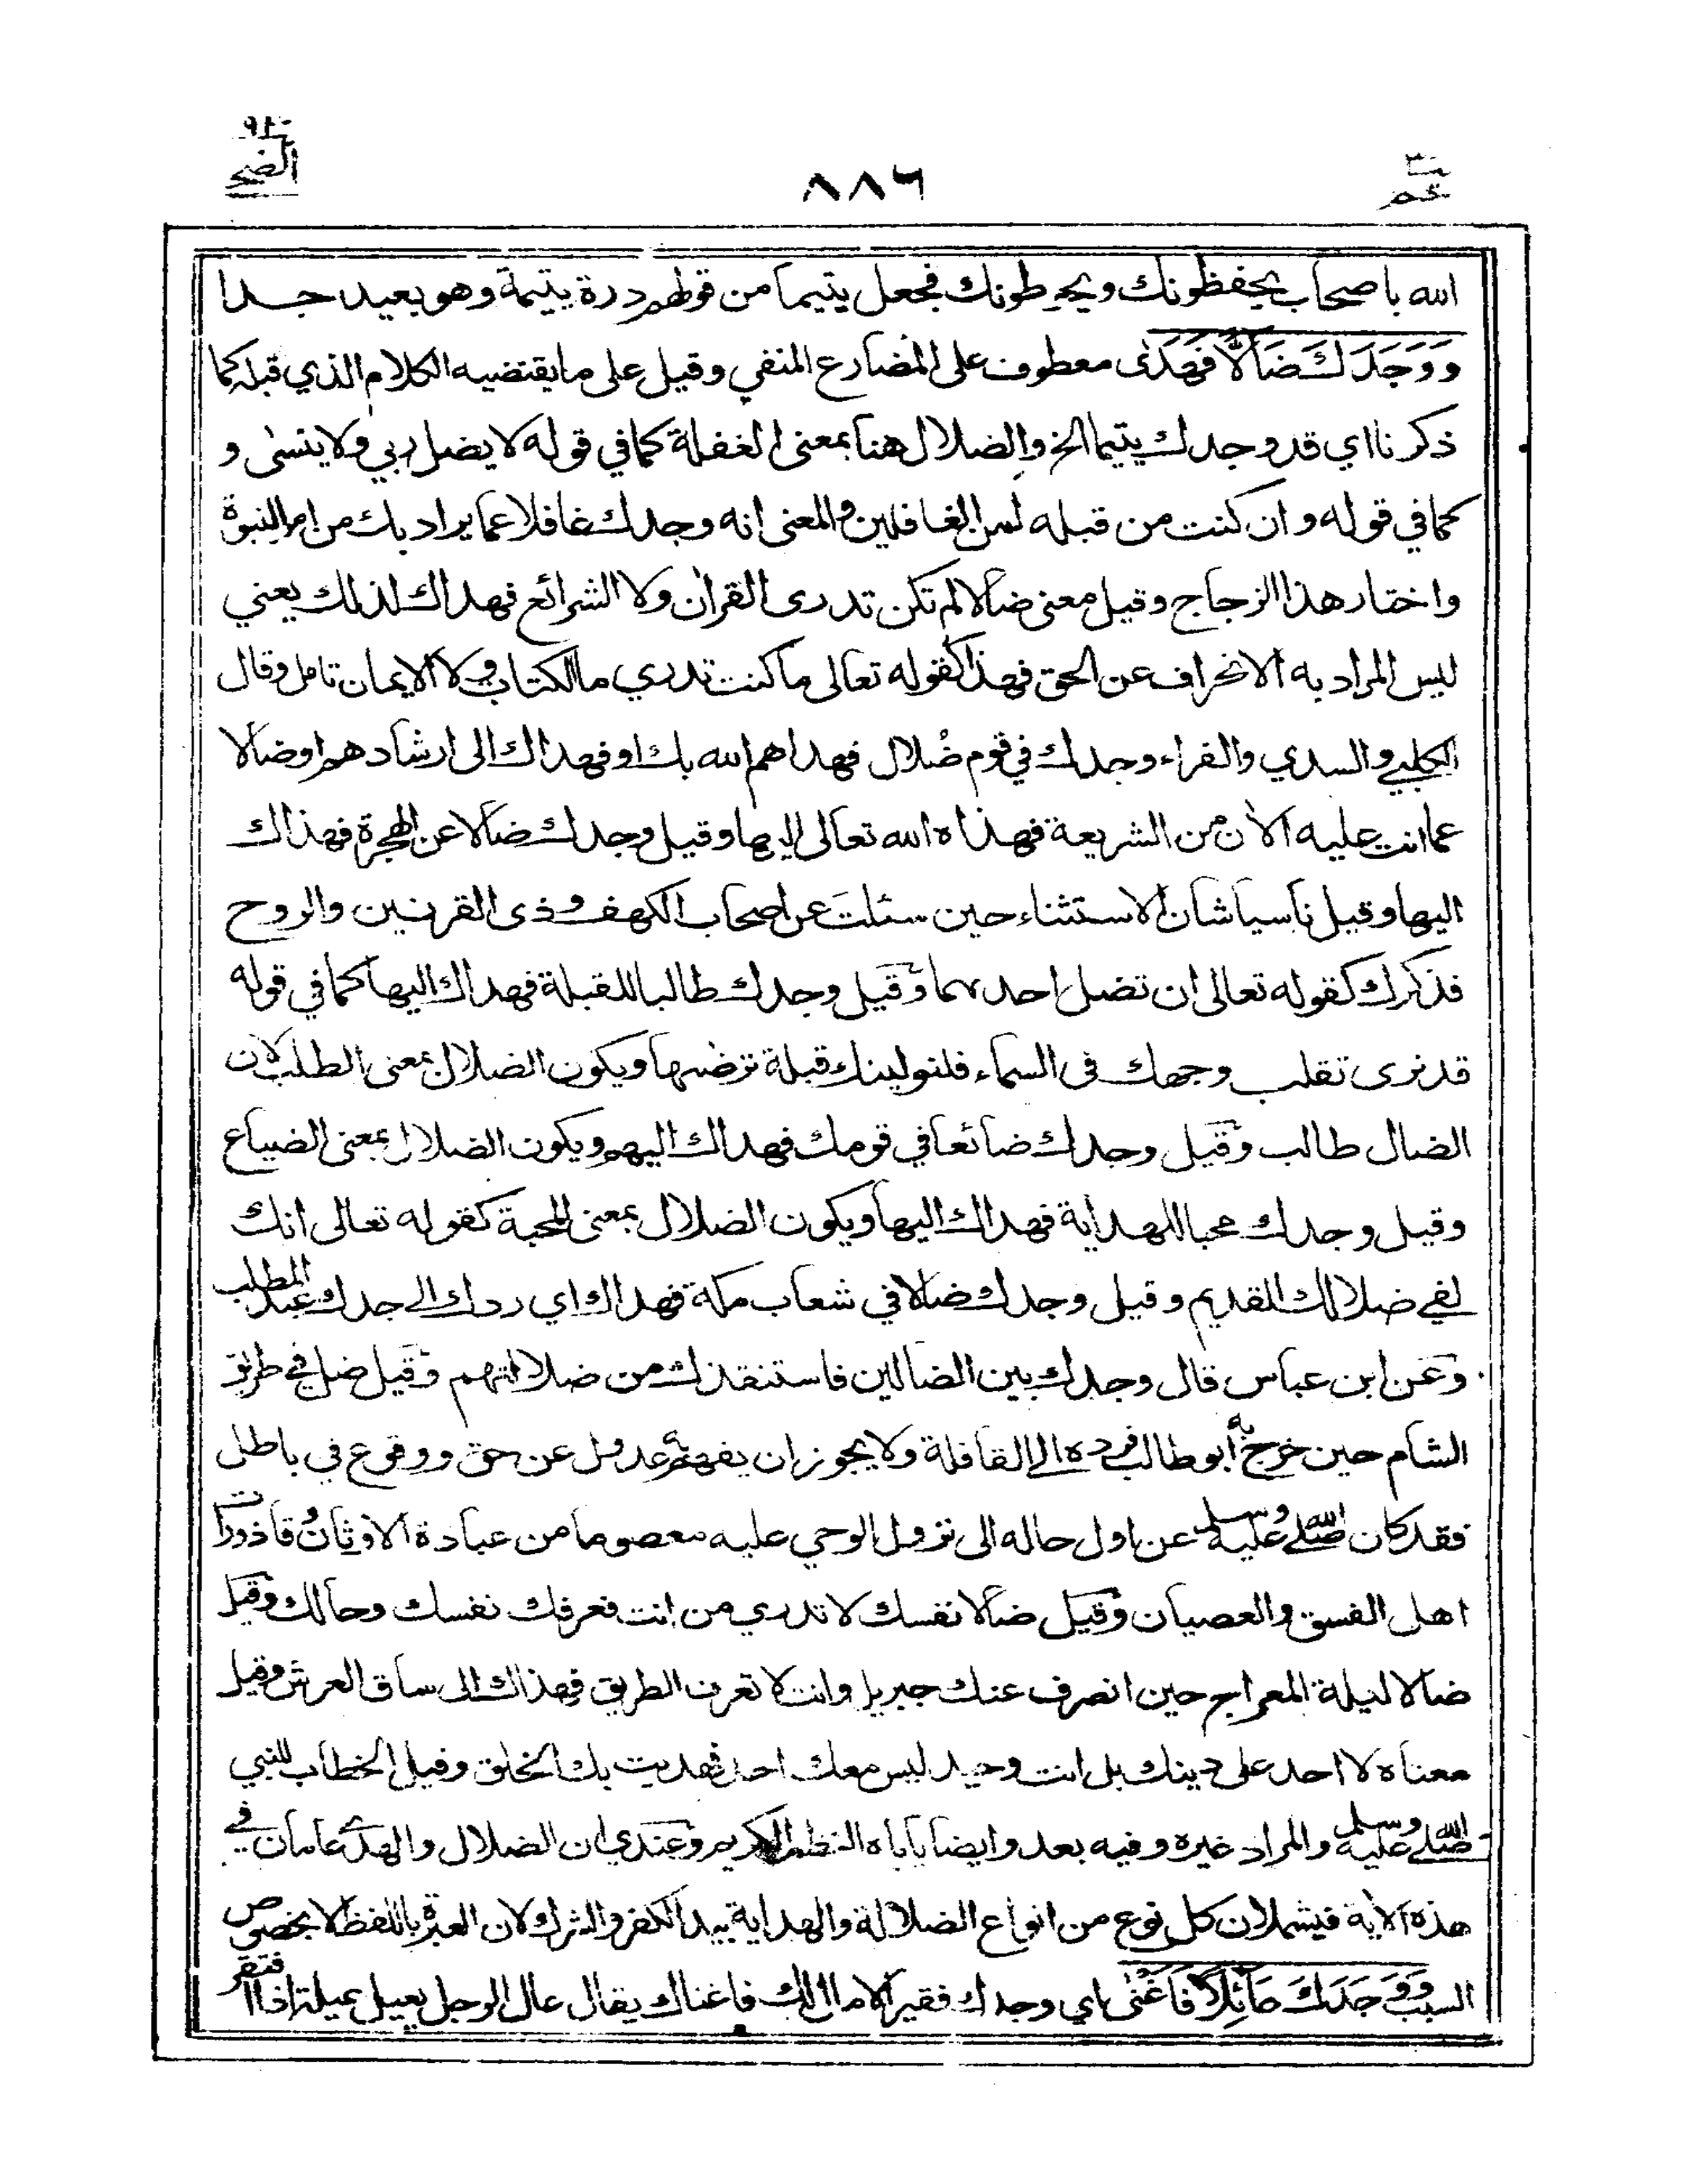 ٩٣
الضحى
٨٨٦
عم
٣٠
الله باصحاب يحفظونك ويحيطونك فجعل يتيما من قولهم درة يتيمة وهو بعيد جدا
وَوَجَدَكَ ضَالًّا فَهَدٰى معطوف على المضارع المنفي وقيل على ما يقتضيه الكلام الذي قبله كما
ذكرنا اي قد وجدك يتيما الخ والضلال هنا بمعنى الغفلة كما في قوله لا يضل ربي ولا ينسى و
كما في قوله وان كنت من قبله لمن الغافلين والمعنى انه وجدك غافلا عما يراد بك من امر النبوة
واختار هذا الزجاج وقيل معنى ضالا لم تكن تدرى القران ولا الشرائع فهداك لذلك يعني
ليس المراد به الانحراف عن الحق فهذا كقوله تعالى ما كنت تدري ما الكتاب ولا الايمان تامل وقال
الكلبي والسدي والفراء وجدك في قوم ضُلال فهداهم الله بك او فهداك الى ارشادهم او ضالا
عما انت عليه الآن من الشريعة فهذاه الله تعالى اليها وقيل وجدك ضالا عن الهجرة فهذاك
اليها وقيل ناسيا شان الاستثناء حين سئلت عن اصحاب الكهف وذى القرنين والروح
فذكرك كقوله تعالى ان تضل احدىهما وقيل وجدك طالبا للقبلة فهداك اليها كما في قوله
قد نرى تقلب وجهك فى السماء فلنولينك قبلة ترضٰىها ويكون الضلال بمعنى الطلب لان
الضال طالب وقيل وجدك ضائعا في قومك فهداك اليهم ويكون الضلال بمعنى الضياع
وقيل وجدك محبا للهداية فهداك اليها ويكون الضلال بمعنى المحبة كقوله تعالى انك
لفي ضلالك القديم وقيل وجدك ضالا في شعاب مكة فهداك اي ردك الى جدك عبد المطلب
وعن ابن عباس قال وجدك بين الضالين فاستنقذك من ضلالتهم وقيل ضل في طريق
الشام حين خرج به أبو طالب فرده الى القافلة ولا يجوز ان يفهم به عدول عن حق ووقوع في باطل
فقد كان صلى الله عليه وسلم عن اول حاله الى نزول الوحي عليه معصوما من عبادة الاوثان وقاذورات
اهل الفسق والعصيان وقيل ضالا نفسك لا تدري من انت فعرفك نفسك وحالك وقيل
ضالا ليلة المعراج حين انصرف عنك جبريل وانت لا تعرف الطريق فهذاك الى ساق العرش وقيل
معناه لا احد على دينك بل انت وحيد ليس معك احد فهديت بك الخلق وقيل الخطاب للنبي
صلى الله عليه وسلم والمراد غيره وفيه بعد وايضا ياباه النظم الكريم وعندي ان الضلال والهدى عامان في
هذه الآية فيشملان كل نوع من انواع الضلالة والهداية بيد الكفر والشرك لان العبرة باللفظ لا بخصوص
السبب وَوَجَدَكَ عَائِلًا فَاَغْنٰى اي وجدك فقيرا لا مال لك فاغناك يقال عال الرجل يعيل عيلة اذا افتقر